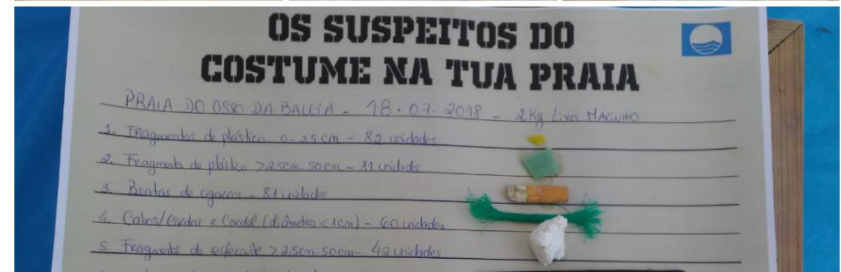 OS SUSPEITOS DO
COSTUME NA TUA PRAIA
PRAIA DO OSSO DA BALEIA - 18.07.2018 - 2 Kg Lixo MARINHO
1. Fragmentos de plástico 0-2.5cm - 82 unidades
2. Fragmento de plástico >2.5cm-50cm - 81 unidades
3. Beatas de cigarros - 81 unidades
4. Cabos/Cordas e Cordel (diâmetro <1cm) - 60 unidades
5. Fragmentos de esferovite >2.5cm-50cm - 42 unidades